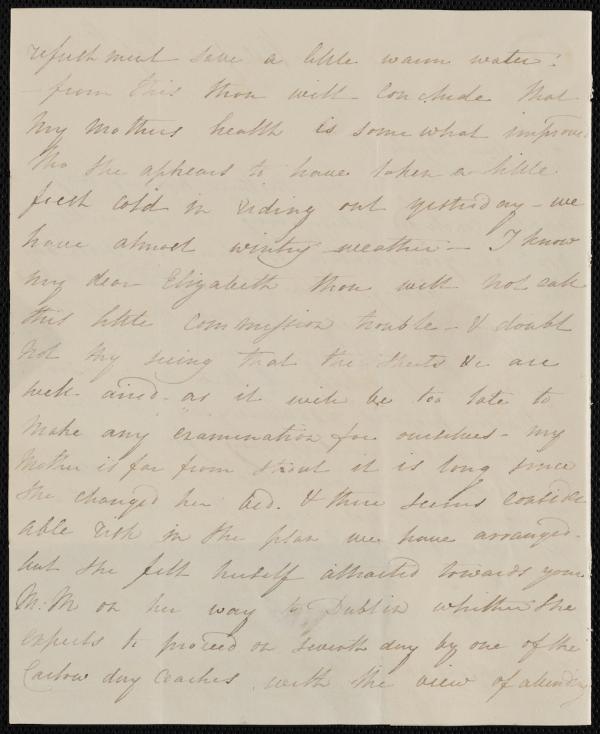 refreshment save a little warm water:
- from this thou will conclude that
my Mothers health is somewhat improved
tho she appears to have taken a little
fresh cold in riding out yesterday - we
have almost wintry weather - I know
my dear Elizabeth thou will not call
this little commission trouble - & doubt
not thy seeing that the sheets &c are
well aired - as it will be too late to
make any examination for ourselves - my
Mother is far from stout it is long since
she changed her bed. & there seems consider
able risk in the plan we have arranged -
but she felt herself attracted towards your
M. M on her way to Dublin whither she
expects to proceed on seventh day by one of the
Carlow day coaches with the view of attending